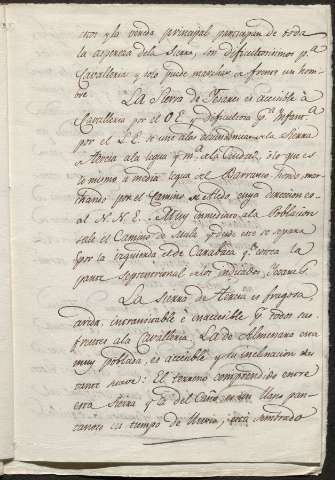 ctos y la senda principal participan de toda
la aspereza dela Sierra, son dificultosisimos p.ª
Cavalleria y solo puede marchar a frente un hom-
bre.
La Sierra de Texares es accesible à
Cavalleria por el O. E y dificultosa p.ª Infant.ª
por el S. E. se une alas
a Tercia ala legua y m.ª ala Ciudad, ò lo que es
lo mismo a media legua del Barranco hondo mar-
chando por el Camino de Aledo, cuya direccion es
al N. N. E. Muy inmediato ala Poblacion
sale el Camino de Mula y desde este se separa
por la izquierda el de Caravaca q.e cerca la
parte Septentrional de los indicados Texares.
La Sierra de Tercia es fragosa,
arida, intransitable è inaccesible p.r todos sus
frentes ala Cavalleria. La de Almenara esta
muy poblada, es accesible y su inclinacion bas
tante suave: El terreno comprendido entre
esta Sierra y
tanoso en tiempo de lluvia; està sembrado